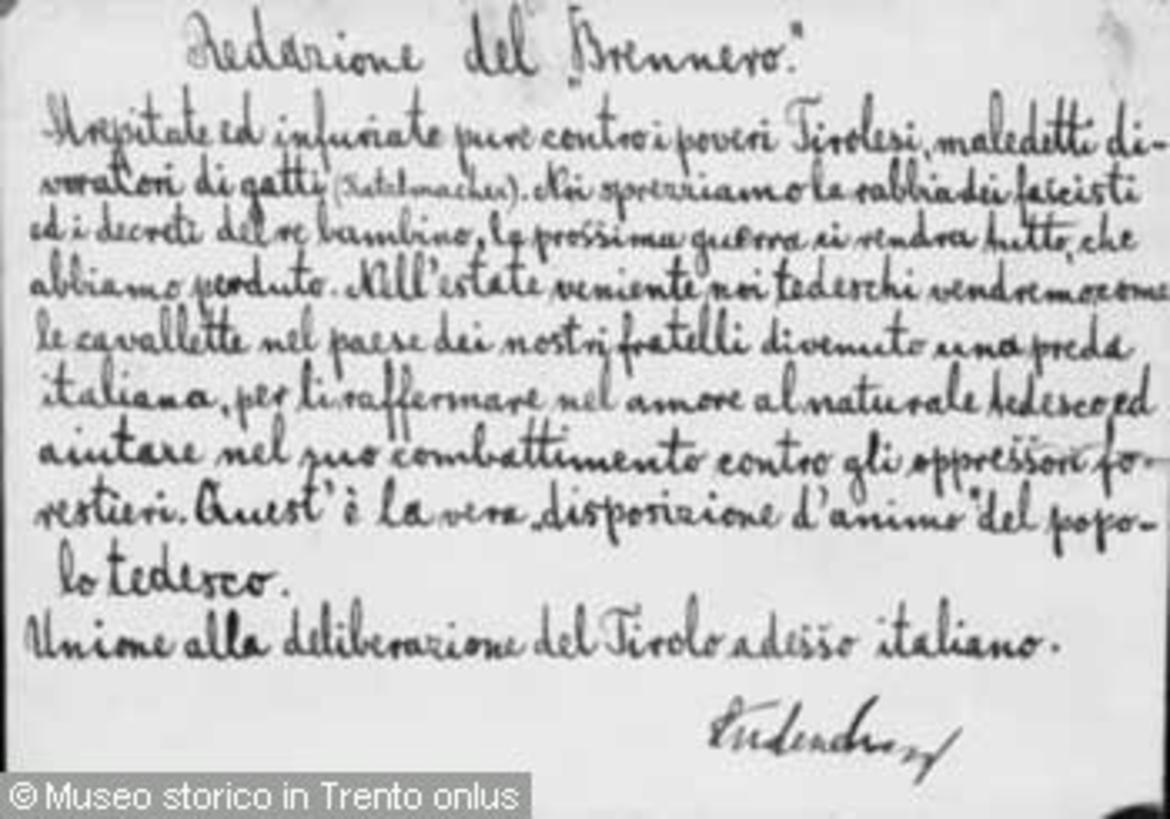 Redazione del „Brennero."
Strepitate ed infuriate pure contro i poveri Tirolesi, maledetti di-
voratori di gatti (Katzlmacher). Noi sprezziamo la rabbia dei fascisti
ed i decreti del re bambino, la prossima guerra ci rendra tutto, che
abbiamo perduto. Nell'estate veniente noi tedeschi vendremo, come
le cavallette nel paese dei nostri fratelli divenuto una preda
italiana, per li raffermare nel amore al naturale tedesco, ed
aiutare nel suo combattimento contro gli oppressori fo-
restieri. Quest' è la vera „disposizione d'animo" del popo-
lo tedesco.
Unione alla deliberazione del Tirolo adesso italiano.
© Museo storico in Trento onlus